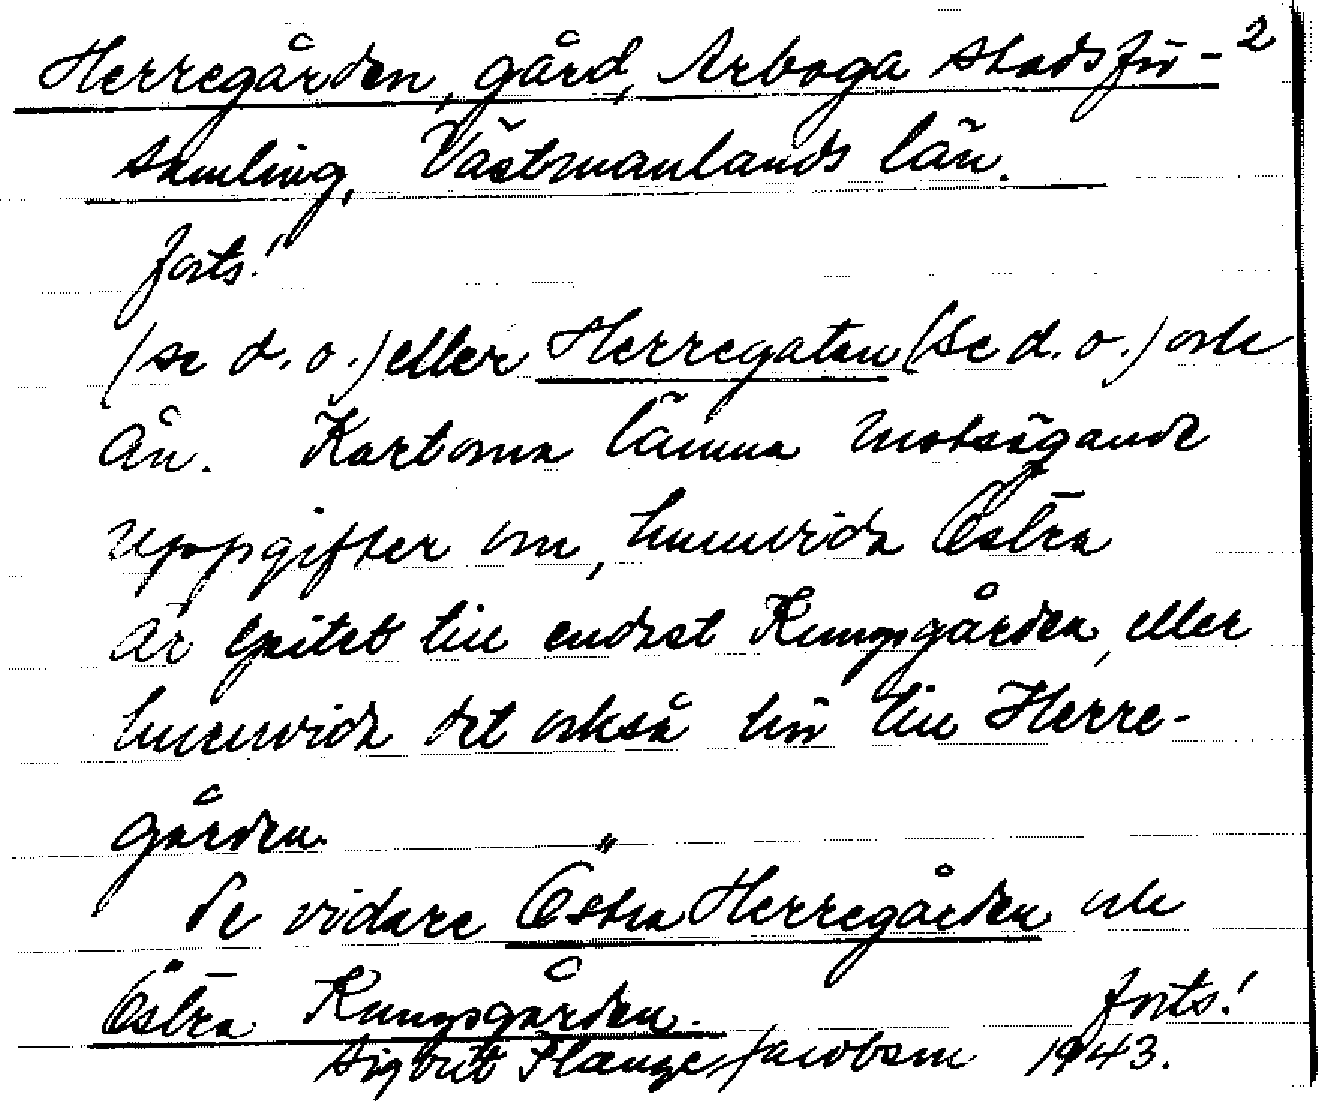 Herregården, gård, Arboga stadsför- 2
samling, Västmanlands län.
forts!
(se d.o.) eller Herregatan (se d.o.) och
ån. Kartorna lämna motsägande
uppgifter om, huruvida Östra
är epitet till endast Kungsgården, eller
huruvida det också hör till Herre-
gården.
Se vidare Östra Herregården och
Östra Kungsgården. forts!
Sigbrit Plænge Jacobson 1943.